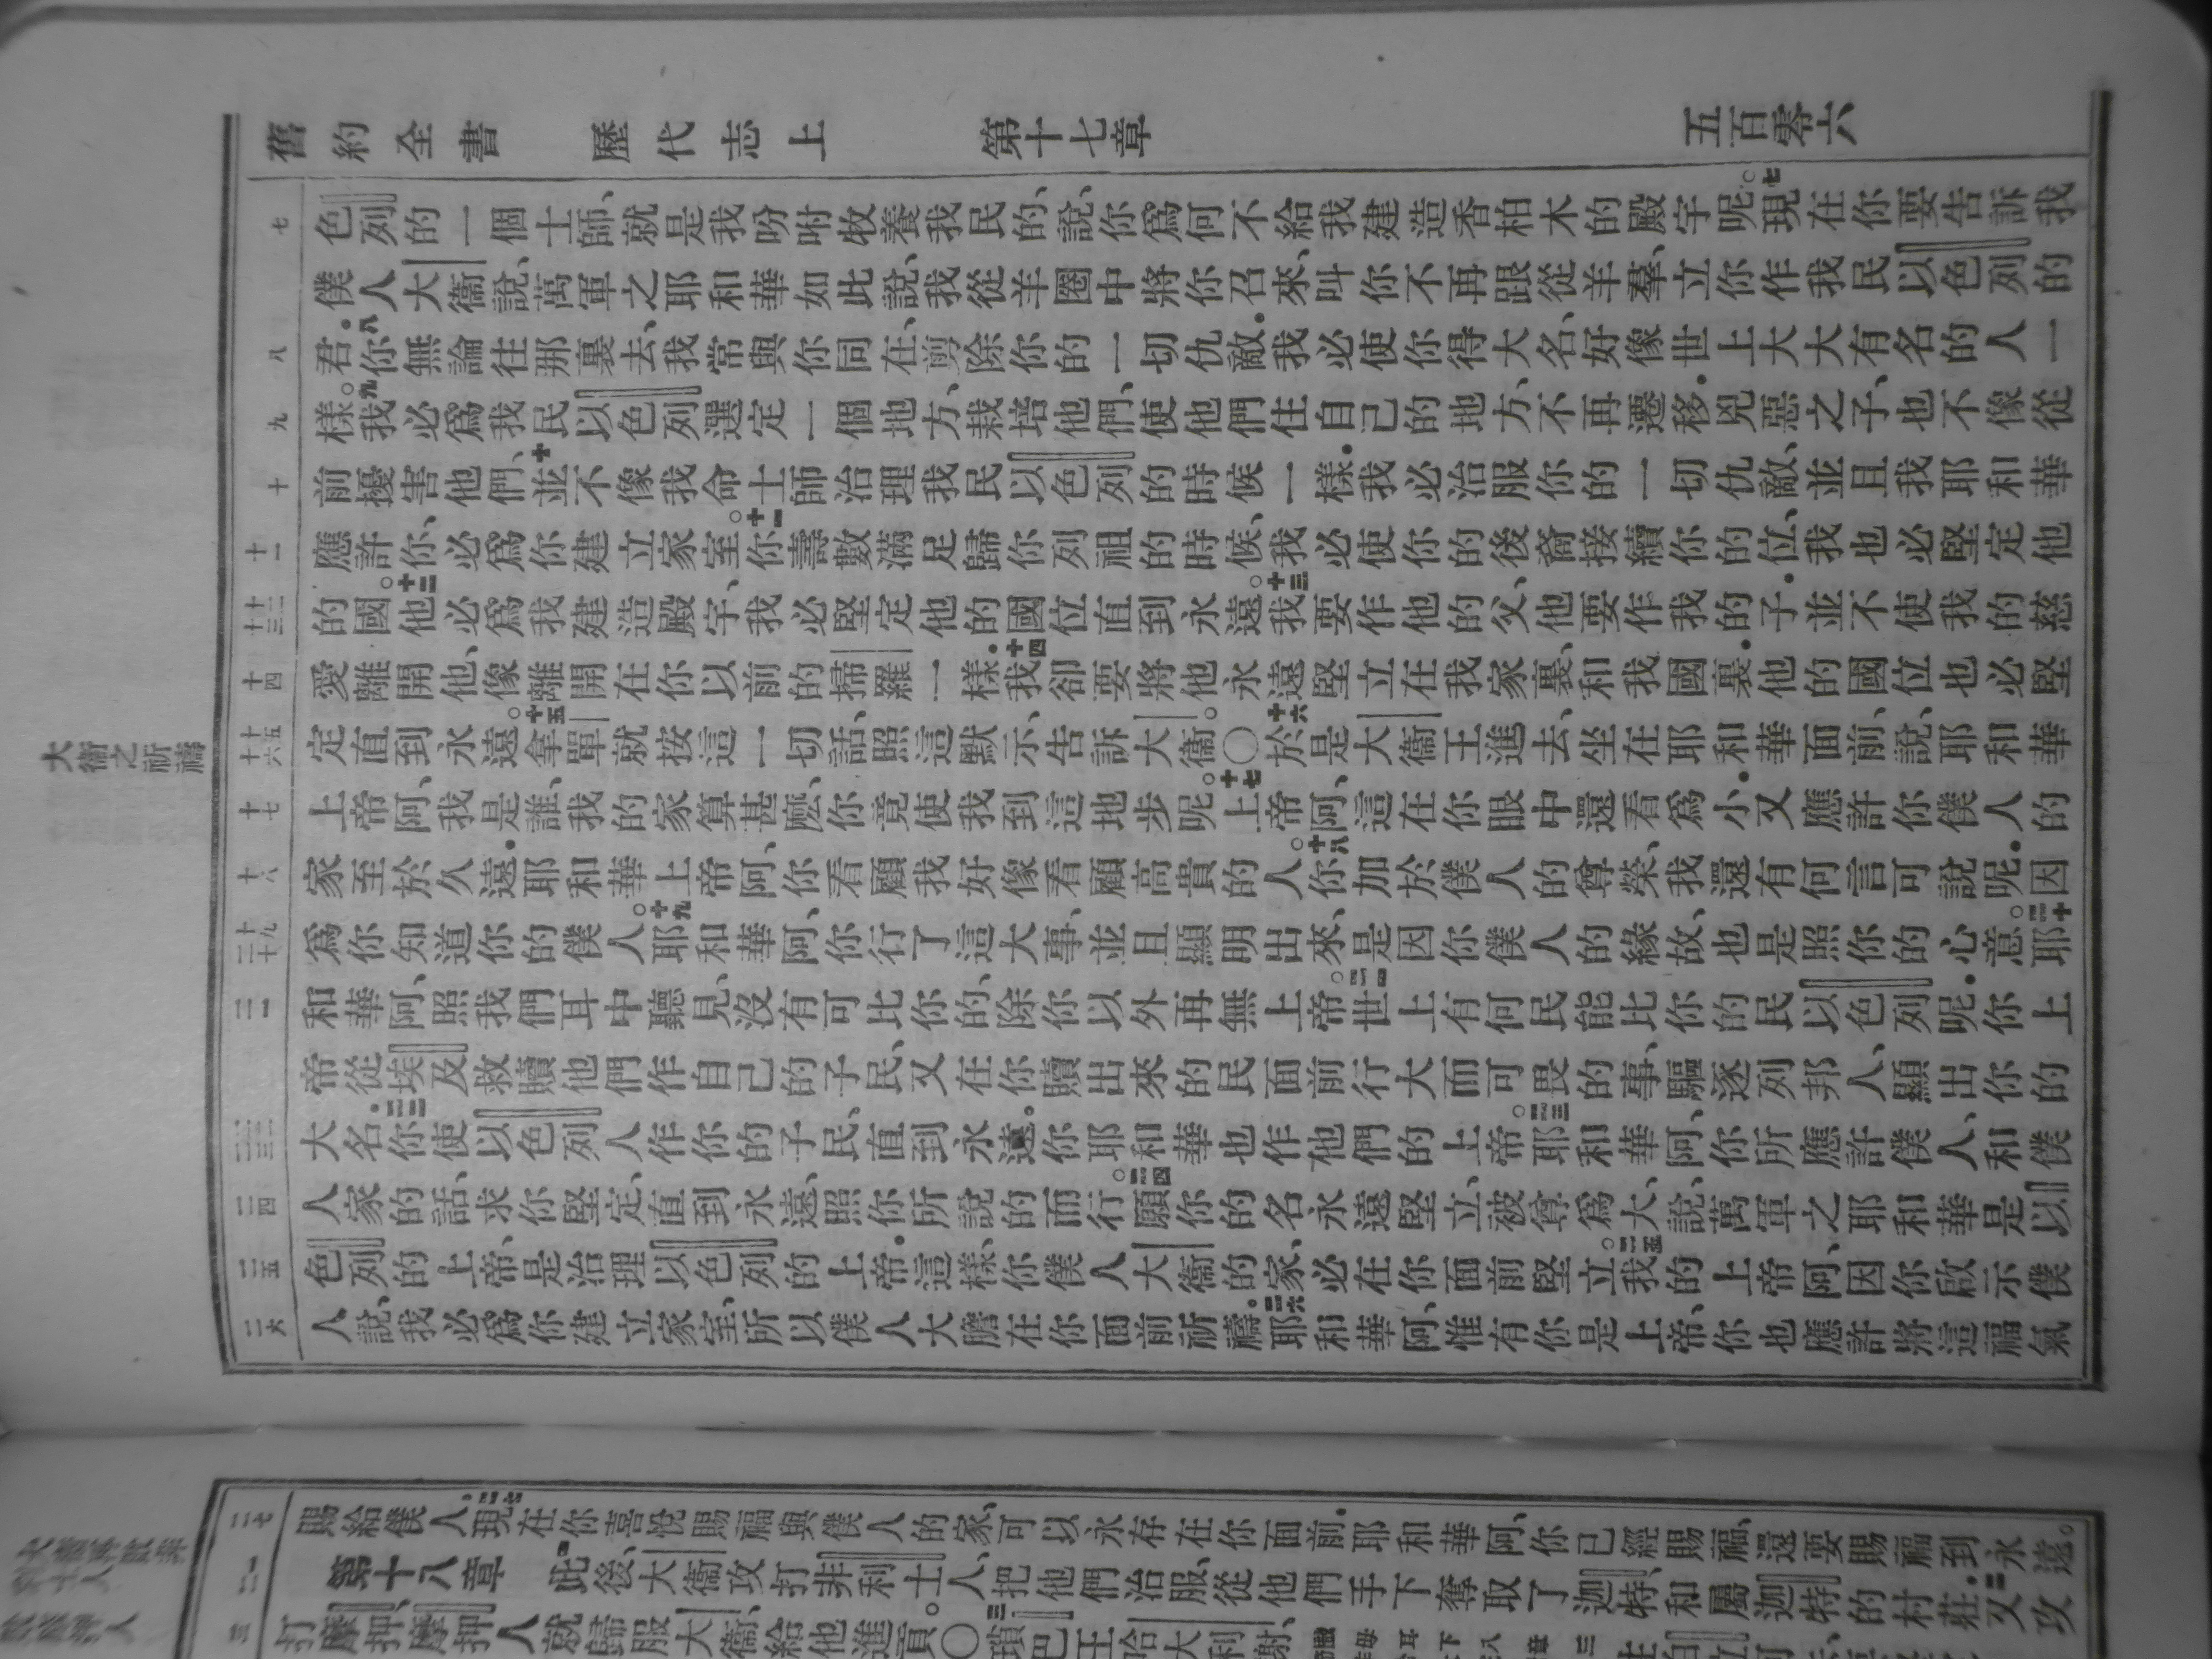 舊約全書 歷代志上 第十七章 五百零六
七 色列的一個士師、就是我吩咐牧養我民的、說、你爲何不給我建造香柏木的殿宇呢。七現在你要告訴我
僕人大衞說、萬軍之耶和華如此說、我從羊圈中將你召來、叫你不再跟從羊羣、立你作我民以色列的
八 君。八你無論往那裏去、我常與你同在、剪除你的一切仇敵。我必使你得大名、好像世上大大有名的人一
九 樣。九我必爲我民以色列選定一個地方、栽培他們、使他們住自己的地方、不再遷移。兇惡之子、也不像從
十 前擾害他們、十並不像我命士師治理我民以色列的時候一樣。我必治服你的一切仇敵、並且我耶和華
十一 應許你、必爲你建立家室。十一你壽數滿足歸你列祖的時候、我必使你的後裔接續你的位、我也必堅定他
十二 十三 的國。十二他必爲我建造殿宇、我必堅定他的國位直到永遠。十三我要作他的父、他要作我的子。並不使我的慈
十四 愛離開他、像離開在你以前的掃羅一樣。十四我卻要將他永遠堅立在我家裏、和我國裏。他的國位也必堅
十五 十六 定直到永遠。十五拿單就按這一切話、照這默示、告訴大衞。〇十六於是大衞王進去、坐在耶和華面前、說、耶和華
十七 上帝阿、我是誰、我的家算甚麼、你竟使我到這地步呢。十七上帝阿、這在你眼中還看爲小。又應許你僕人的
十八 家至於久遠。耶和華上帝阿、你看顧我好像看顧高貴的人。十八你加於僕人的尊榮、我還有何言可說呢。因
十九 二十 爲你知道你的僕人。十九耶和華阿、你行了這大事、並且顯明出來、是因你僕人的緣故、也是照你的心意。二十耶
二一 和華阿、照我們耳中聽見、沒有可比你的、除你以外再無上帝。二一世上有何民能比你的民以色列呢。你上
帝從埃及救贖他們作自己的子民、又在你贖出來的民面前行大而可畏的事、驅逐列邦人、顯出你的
二二 二三 大名。二二你使以色列人作你的子民、直到永遠。你耶和華也作他們的上帝。二三耶和華阿、你所應許僕人、和僕
二四 人家的話、求你堅定、直到永遠、照你所說的而行。二四願你的名永遠堅立、被尊爲大、說、萬軍之耶和華是以
二五 色列的上帝、是治理以色列的上帝。這樣、你僕人大衞的家、必在你面前堅立。二五我的上帝阿、因你啟示僕
二六 人說、我必爲你建立家室、所以僕人大膽在你面前祈禱。二六耶和華阿、惟有你是上帝、你也應許將這福氣
大衞之祈禱
二七 賜給僕人。二七現在你喜悅賜福與僕人的家、可以永存在你面前。耶和華阿、你已經賜福、還要賜福到永遠。
一 二 第十八章 一此後、大衞攻打非利士人、把他們治服、從他們手下奪取了迦特、和屬迦特的村莊。二又攻
三 打摩押、摩押人就歸服大衞、給他進貢。〇三瑣巴王哈大利謝、